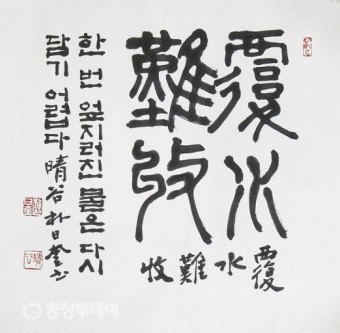 覆水
難收
覆水難收
한 번 엎지러진 물은 다시
담기 어렵다 晴谷 朴日奎
충청투데이